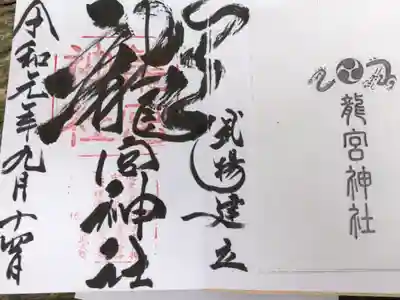 武揚建立
龍宮神社
令和元年九月十四日
龍宮神社